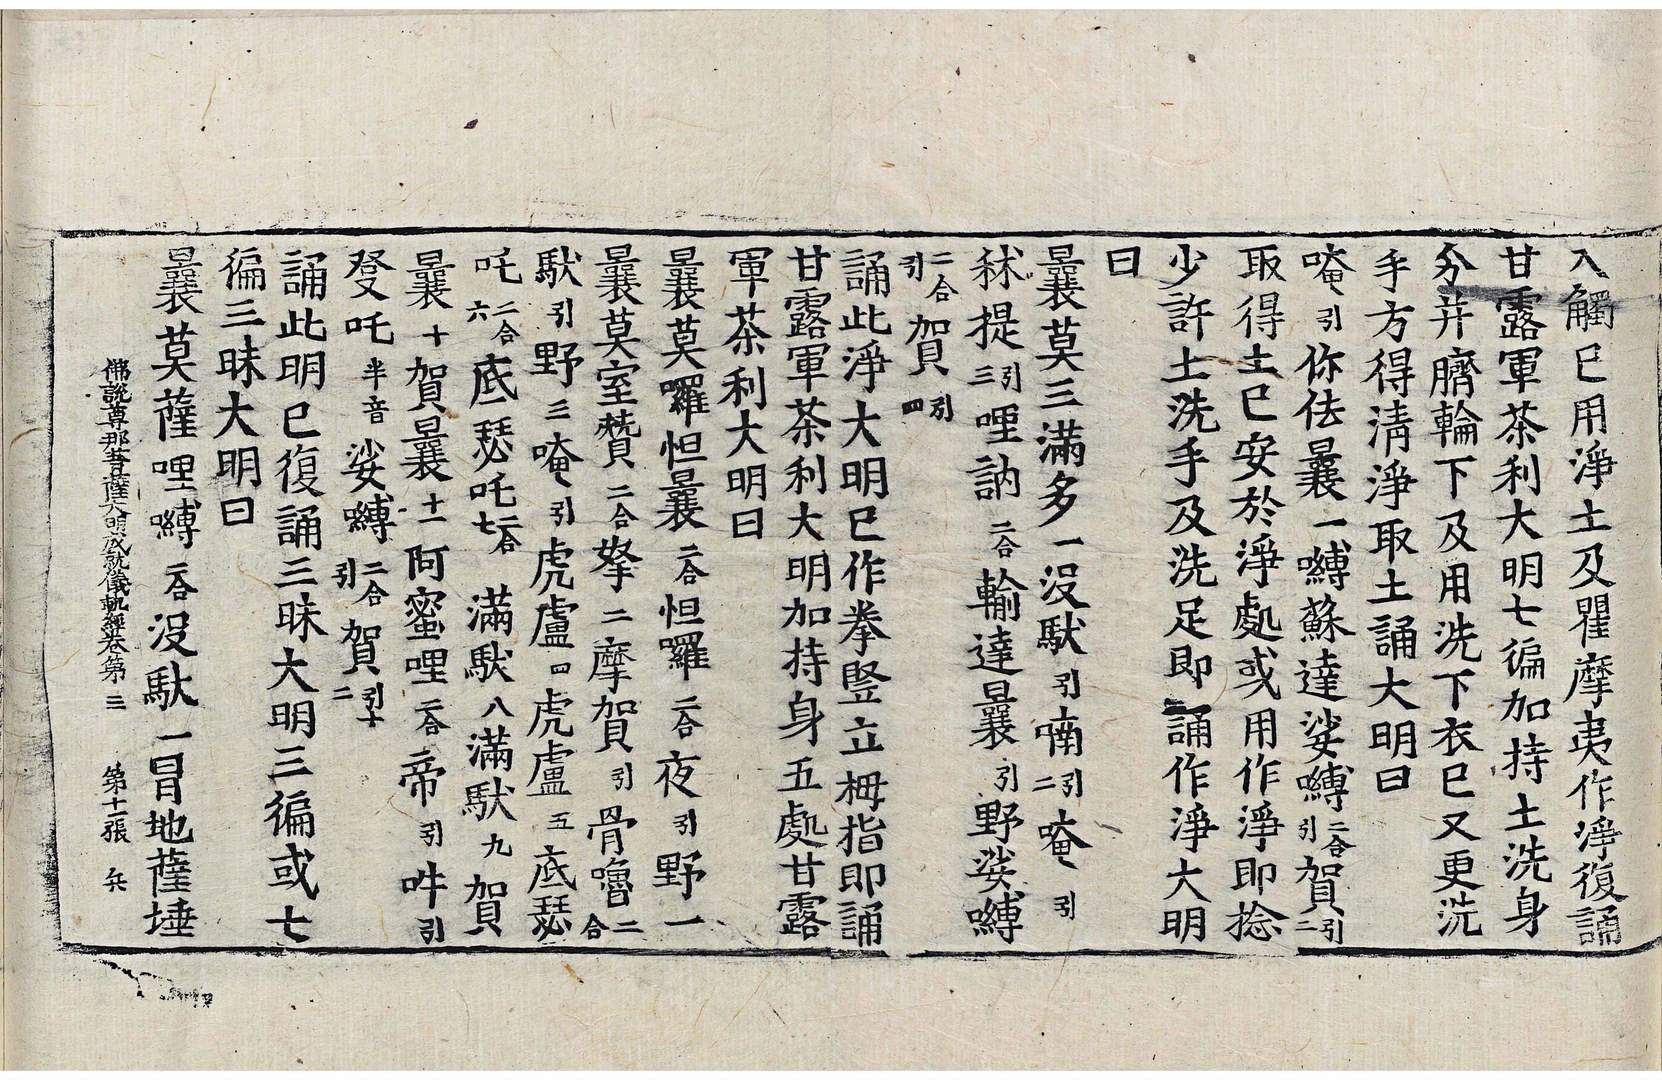 入觸已用淨土及瞿摩夷作淨復誦
甘露軍茶利大明七徧加持土洗身
分幷臍輪下及用洗下衣已又更洗
手方得淸淨取土誦大明曰
唵引你佉曩一嚩蘇達娑嚩二合引賀引二
取得土已安於淨處或用作淨即捻
少許土洗手及洗足即誦作淨大明
曰
曩莫三滿多一沒馱引喃引二唵引
秫提引三哩訥二合輸達曩引野娑嚩
二合引賀引四
誦此淨大明已作拳竪立拇指即誦
甘露軍茶利大明加持身五處甘露
軍茶利大明曰
曩莫囉怛曩二合怛囉二合夜引野一
曩莫室贊二合拏二摩賀引骨嚕二合
馱引野三唵引虎盧四虎盧五底瑟
吒二合六底瑟吒二合七滿馱八滿馱九賀
曩十賀曩十一阿蜜哩二合帝引吽引
發吒半音娑嚩二合引賀引十二
誦此明已復誦三昧大明三徧或七
徧三昧大明曰
曩莫薩哩嚩二合沒馱一冒地薩埵
佛說尊那菩薩大明成就儀軌經卷第三 第十二張 兵